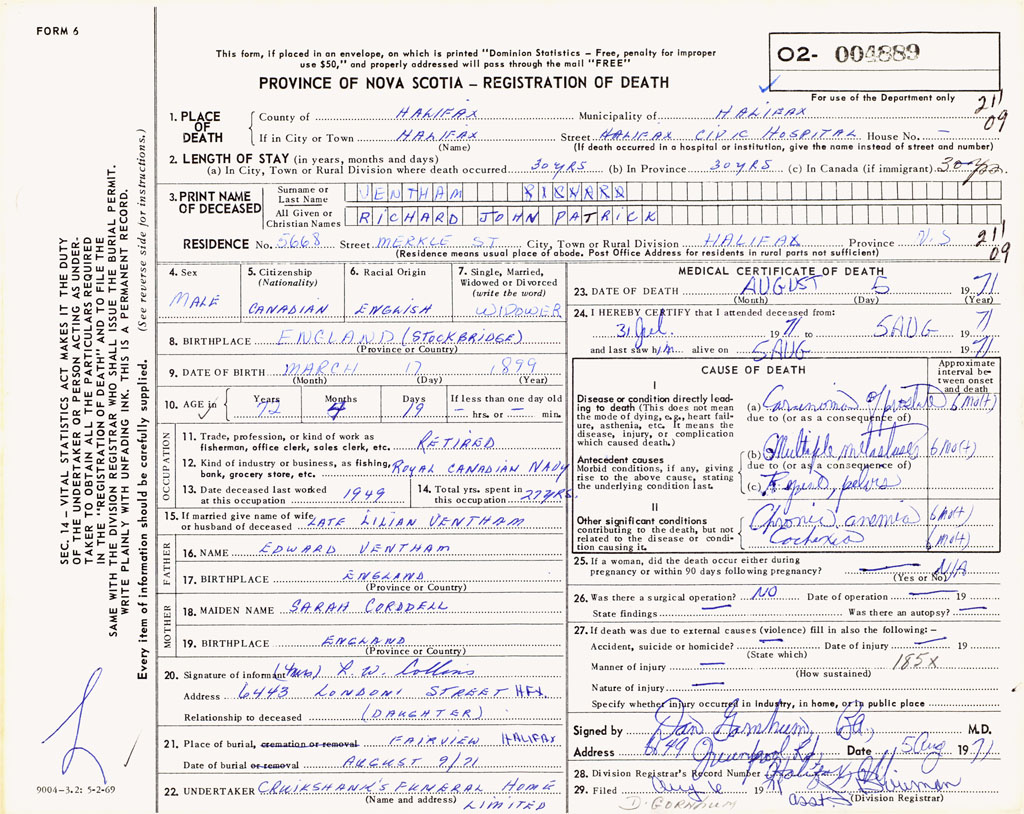 FORM 6
This form, if placed in an envelope, on which is printed "Dominion Statistics – Free, penalty for improper
use $50," and properly addressed will pass through the mail "FREE"
PROVINCE OF NOVA SCOTIA – REGISTRATION OF DEATH
02- 004889
For use of the Department only
21/09
1. PLACE OF DEATH
County of HALIFAX Municipality of HALIFAX
If in City or Town HALIFAX Street HALIFAX CIVIC HOSPITAL House No. –
(Name) (If death occurred in a hospital or institution, give the name instead of street and number)
2. LENGTH OF STAY (in years, months and days)
(a) In City, Town or Rural Division where death occurred 30 YRS (b) In Province 30 YRS (c) In Canada (if immigrant) 30 yrs
3. PRINT NAME OF DECEASED
Surname or Last Name VENTHAM RICHARD
All Given or Christian Names RICHARD JOHN PATRICK
RESIDENCE No. 5668 Street MERKLE ST City, Town or Rural Division HALIFAX Province N.S
21/09
(Residence means usual place of abode. Post Office Address for residents in rural parts not sufficient)
4. Sex
MALE
5. Citizenship
(Nationality)
CANADIAN
6. Racial Origin
ENGLISH
7. Single, Married,
Widowed or Divorced
(write the word)
WIDOWER
8. BIRTHPLACE ENGLAND (STOCKBRIDGE)
(Province or Country)
9. DATE OF BIRTH MARCH 17 1899
(Month) (Day) (Year)
10. AGE in
Years 72 Months 4 Days 19
If less than one day old
– hrs. or – min.
OCCUPATION
11. Trade, profession, or kind of work as
fisherman, office clerk, sales clerk, etc. RETIRED
12. Kind of industry or business, as fishing,
bank, grocery store, etc. ROYAL CANADIAN NAVY
13. Date deceased last worked
at this occupation 1949
14. Total yrs. spent in
this occupation 27 YRS.
15. If married give name of wife
or husband of deceased LATE LILIAN VENTHAM
FATHER
16. NAME EDWARD VENTHAM
17. BIRTHPLACE ENGLAND
(Province or Country)
MOTHER
18. MAIDEN NAME SARAH CORDDELL
19. BIRTHPLACE ENGLAND
(Province or Country)
20. Signature of informant (Mrs) R. W. Collins
Address 6443 LONDON STREET HFX.
Relationship to deceased (DAUGHTER)
21. Place of burial, cremation or removal FAIRVIEW HALIFAX
Date of burial or removal AUGUST 9/71
22. UNDERTAKER CRUIKSHANK'S FUNERAL HOME
(Name and address) LIMITED
MEDICAL CERTIFICATE OF DEATH
23. DATE OF DEATH AUGUST 5 1971
(Month) (Day) (Year)
24. I HEREBY CERTIFY that I attended deceased from:
31 Jul. 1971 to 5 AUG 71
and last saw him alive on 5 AUG 1971
CAUSE OF DEATH
Approximate
interval be-
tween onset
and death
I
Disease or condition directly lead-
ing to death (This does not mean
the mode of dying, e.g., heart fail-
ure, asthenia, etc. It means the
disease, injury, or complication
which caused death.)
(a) Carcinoma of prostate 6 mo(+)
due to (or as a consequence of)
Antecedent causes
Morbid conditions, if any, giving
rise to the above cause, stating
the underlying condition last.
(b) Multiple metastases 6 mo(+)
due to (or as a consequence of)
(c) pelvis
II
Other significant conditions
contributing to the death, but not
related to the disease or condi-
tion causing it.
Chronic anemia 6 mo(+)
Cachexia 6 mo(+)
25. If a woman, did the death occur either during
pregnancy or within 90 days following pregnancy? — N/A
(Yes or No)
26. Was there a surgical operation? NO Date of operation — 19 –
State findings — Was there an autopsy? –
27. If death was due to external causes (violence) fill in also the following: –
Accident, suicide or homicide? — Date of injury — 19
(State which)
Manner of injury — 185X
(How sustained)
Nature of injury —
Specify whether injury occurred in industry, in home, or in public place
Signed by M.D.
Address 6149 Rd. Date 5 Aug 1971
28. Division Registrar's Record Number
29. Filed Aug 6 1971 asst.
(Division Registrar)
SEC. 14 – VITAL STATISTICS ACT MAKES IT THE DUTY
OF THE UNDERTAKER OR PERSON ACTING AS UNDER-
TAKER TO OBTAIN ALL THE PARTICULARS REQUIRED
IN THE "REGISTRATION OF DEATH" AND TO FILE THE
SAME WITH THE DIVISION REGISTRAR WHO SHALL ISSUE THE BURIAL PERMIT.
WRITE PLAINLY WITH UNFADING INK. THIS IS A PERMANENT RECORD.
Every item of information should be carefully supplied. (See reverse side for instructions.)
9004-3.2: 5-2-69